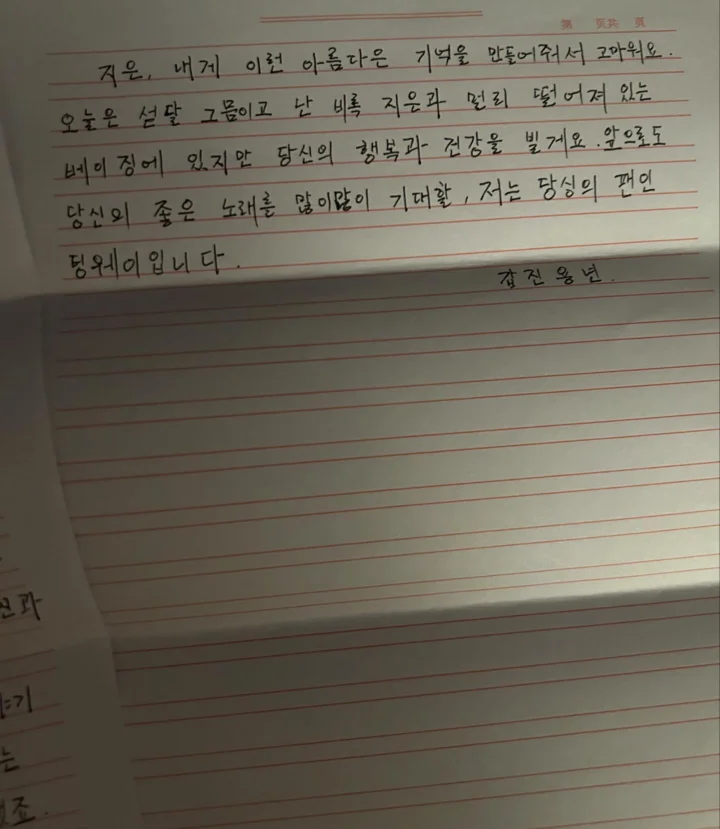 第 页共 页
지은, 내게 이런 아름다운 기억을 만들어줘서 고마워요.
오늘은 섣달 그믐이고 난 비록 지은과 멀리 떨어져 있는
베이징에 있지만 당신의 행복과 건강을 빌게요. 앞으로도
당신의 좋은 노래를 많이많이 기대할, 저는 당싱의 팬인
딩웨이입니다.
갑진용년.
과
기
는
죠.